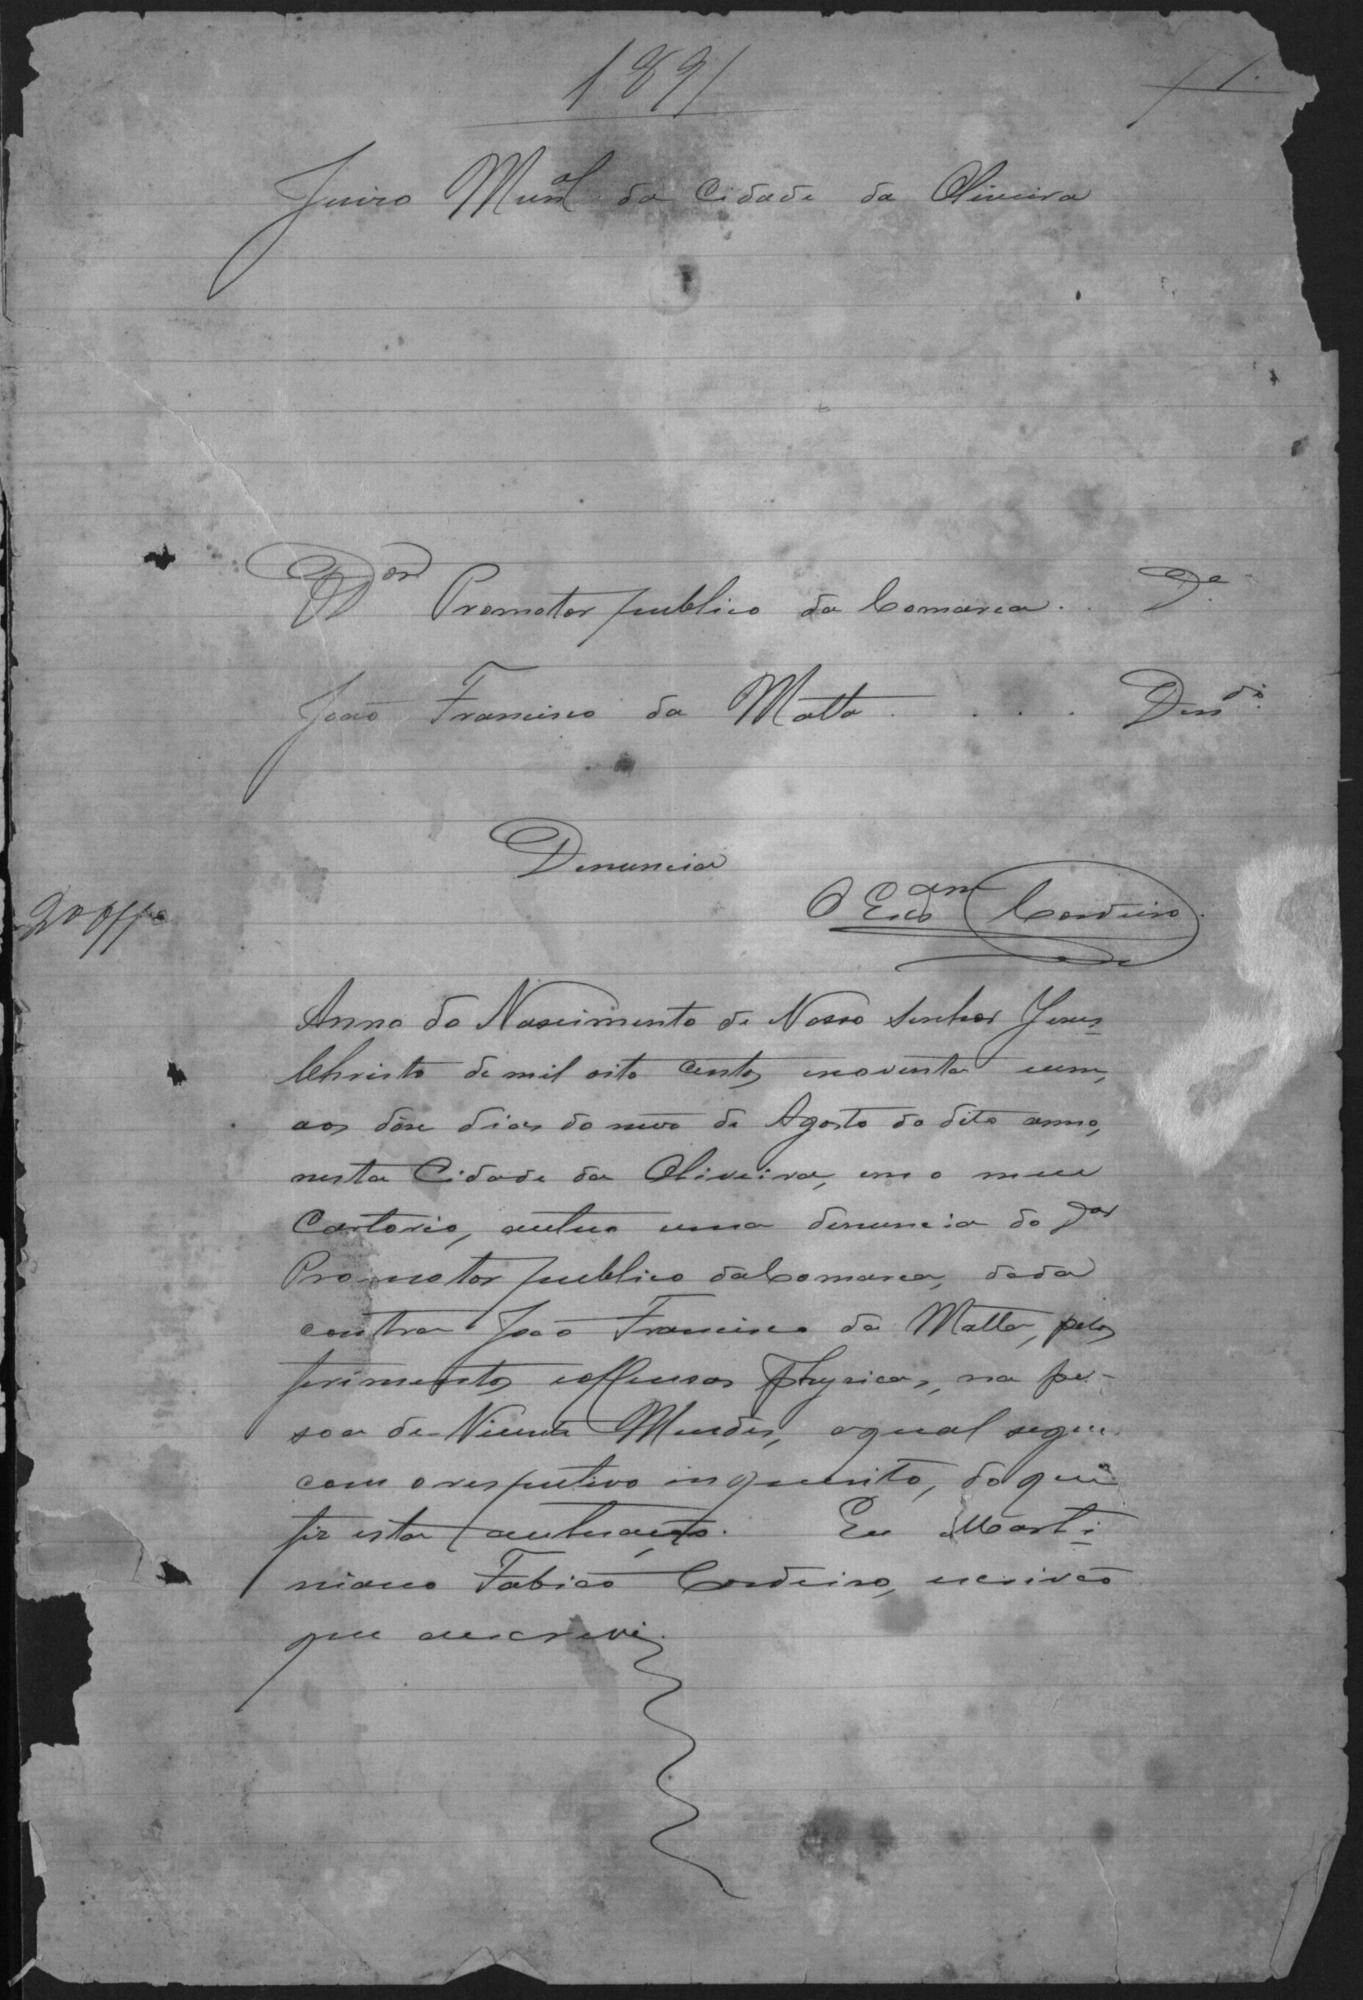 1891
1.
Juizo Mun.al da Cidade da Oliveira
Dor Promotor publico da Comarca . . De.
João Francisco da Matta . . . . Dendo.
Denuncia
O Escam Cordeiro.
Anno do Nascimento de Nosso Senhor Jesus-
Christo de mil oito centos e noventa e um,
aos dôse dias do mês de Agosto do dito anno,
nesta Cidade da Oliveira, em o meu
Cartorio, autuo uma denuncia do Dor
Promotor publico da Comarca, dada
contra João Francisco da Matta, pelos
ferimentos e offensas physicas, na pes-
soa de Vicente Mendes, a qual segue
com o respectivo inquerito, do que
fiz esta autuação. Eu Marti-
niano Fabião Cordeiro, escrivão
que escrevi.